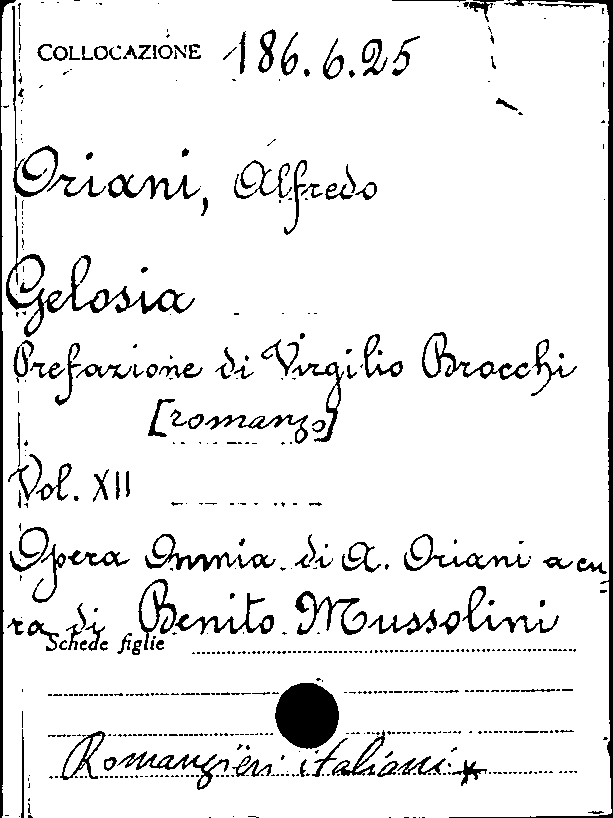 COLLOCAZIONE 186.6.25
Oriani, Alfredo
Gelosia
Prefazione di Virgilio Brocchi
[romanzo]
Vol. XII
Opera Omnia di A. Oriani a cu=
ra di Benito Mussolini
Schede figlie
Romanzieri italiani *